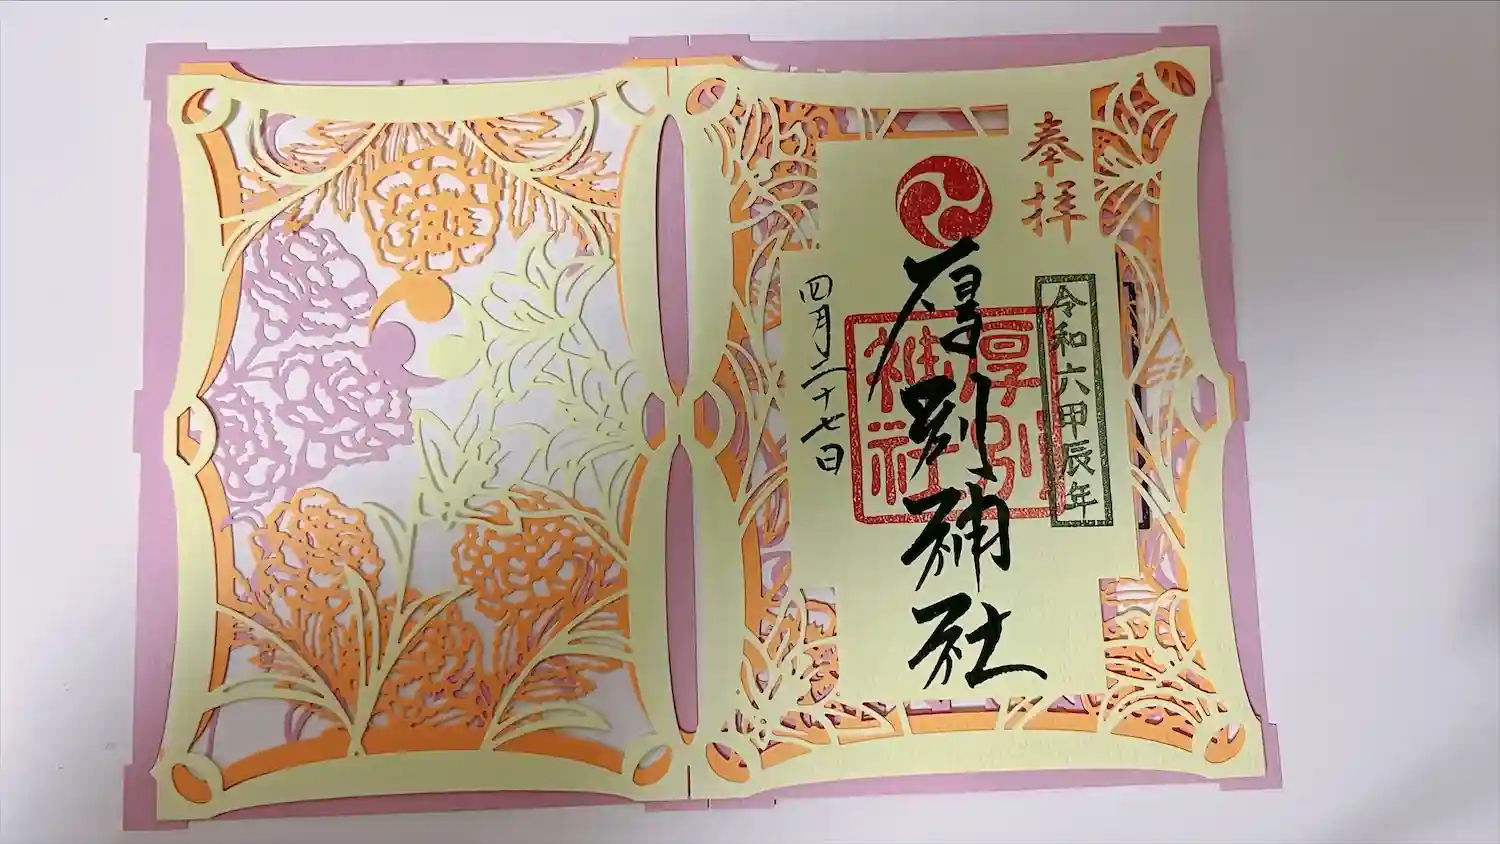 奉拝
令和六甲辰年
厚別神社
厚別
神社
四月二十七日